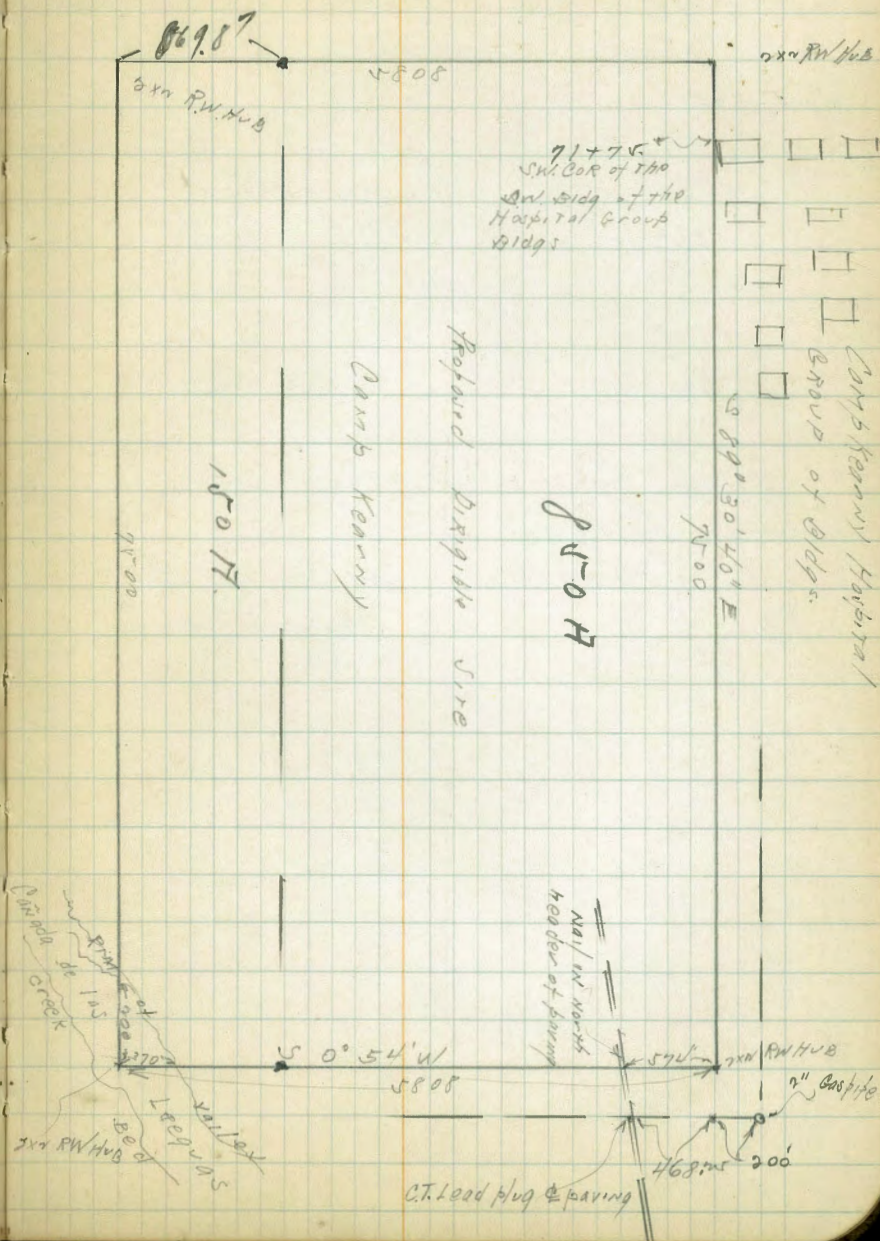 869.87
2x2 RW HUB
2x2 R.W. HUB
5808
71+75.
S.W. COR of The
S.W. Bldg of the
Hospital Group
Bldgs
Camp Kearny Hospital
Group of Bldgs.
S 89° 30' 40" E
7500
Proposed Dirigible Site
Camp Kearny
850 A
150 A.
7500
Nail in North
header of paving
Rim of Valley
Cañada de las Yeguas
Creek Bed
200
270
S 0° 54' W
5808
575
2x2 RW HUB
2" Gaspipe
2x2 RW HUB
200'
C.T. Lead plug ⅊ paving